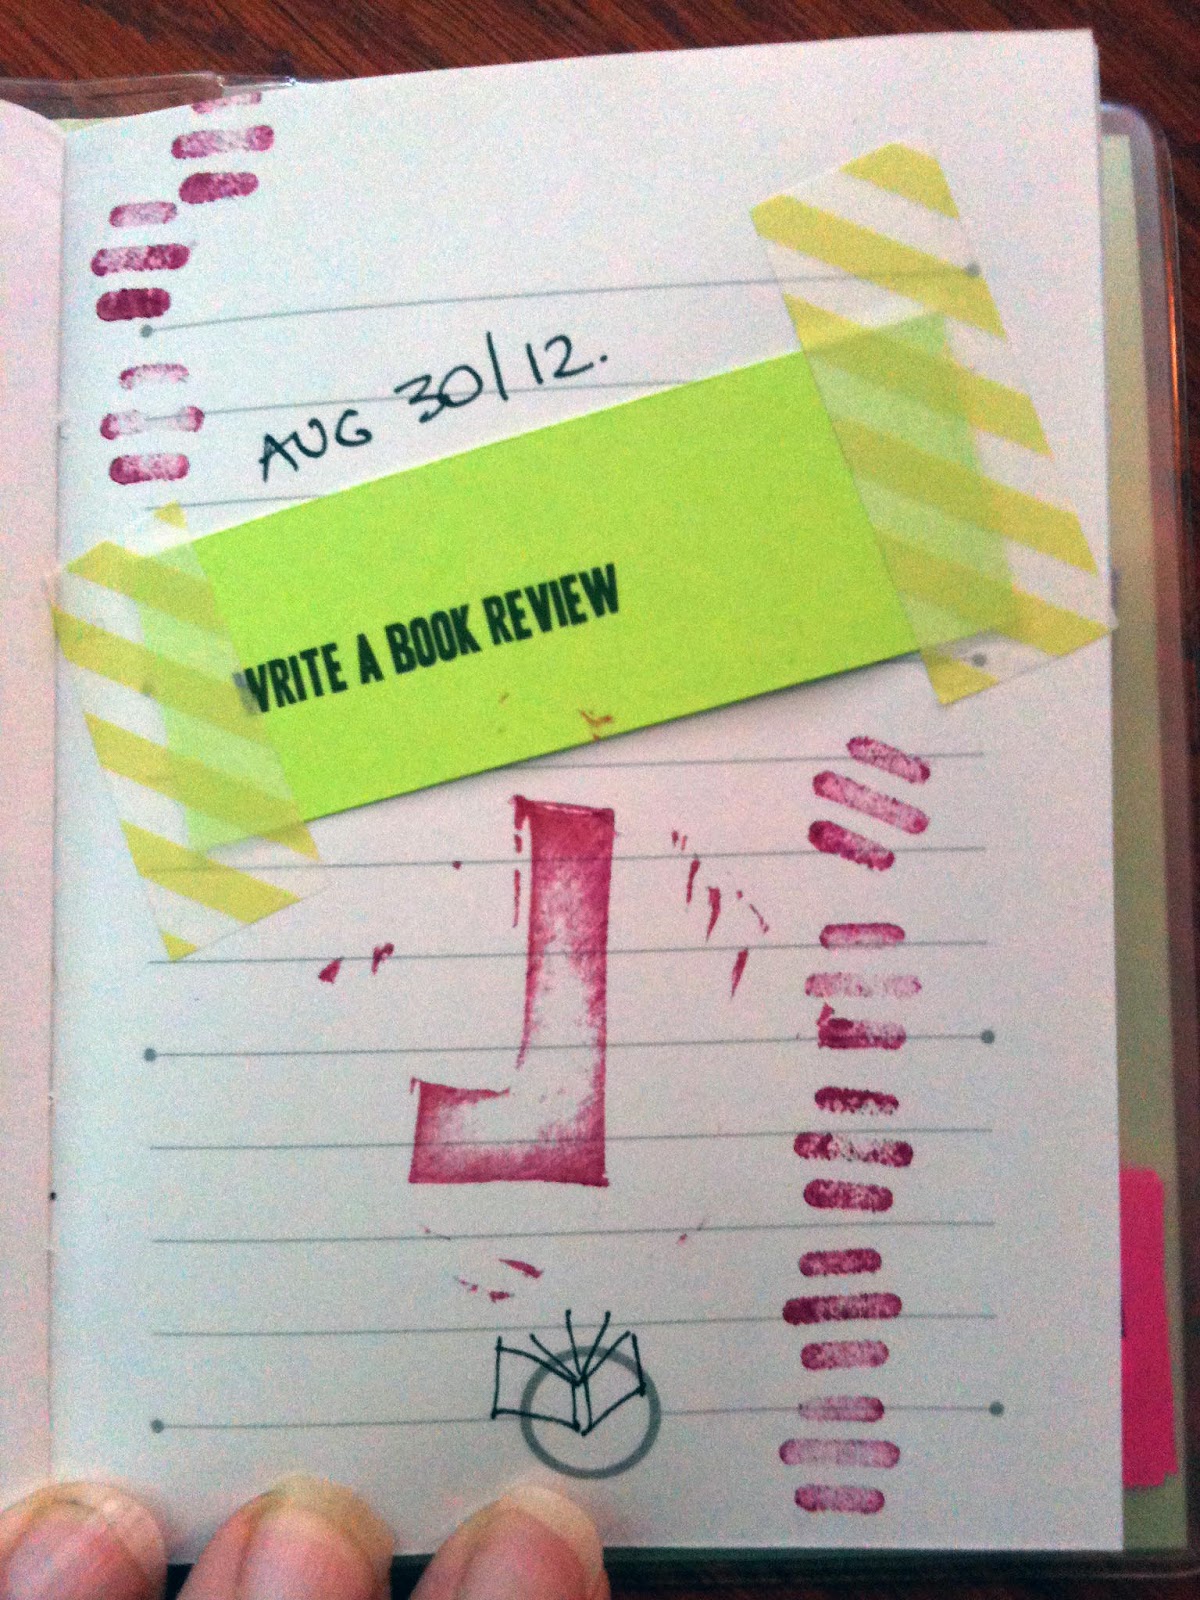 AUG 30/12.
WRITE A BOOK REVIEW
J